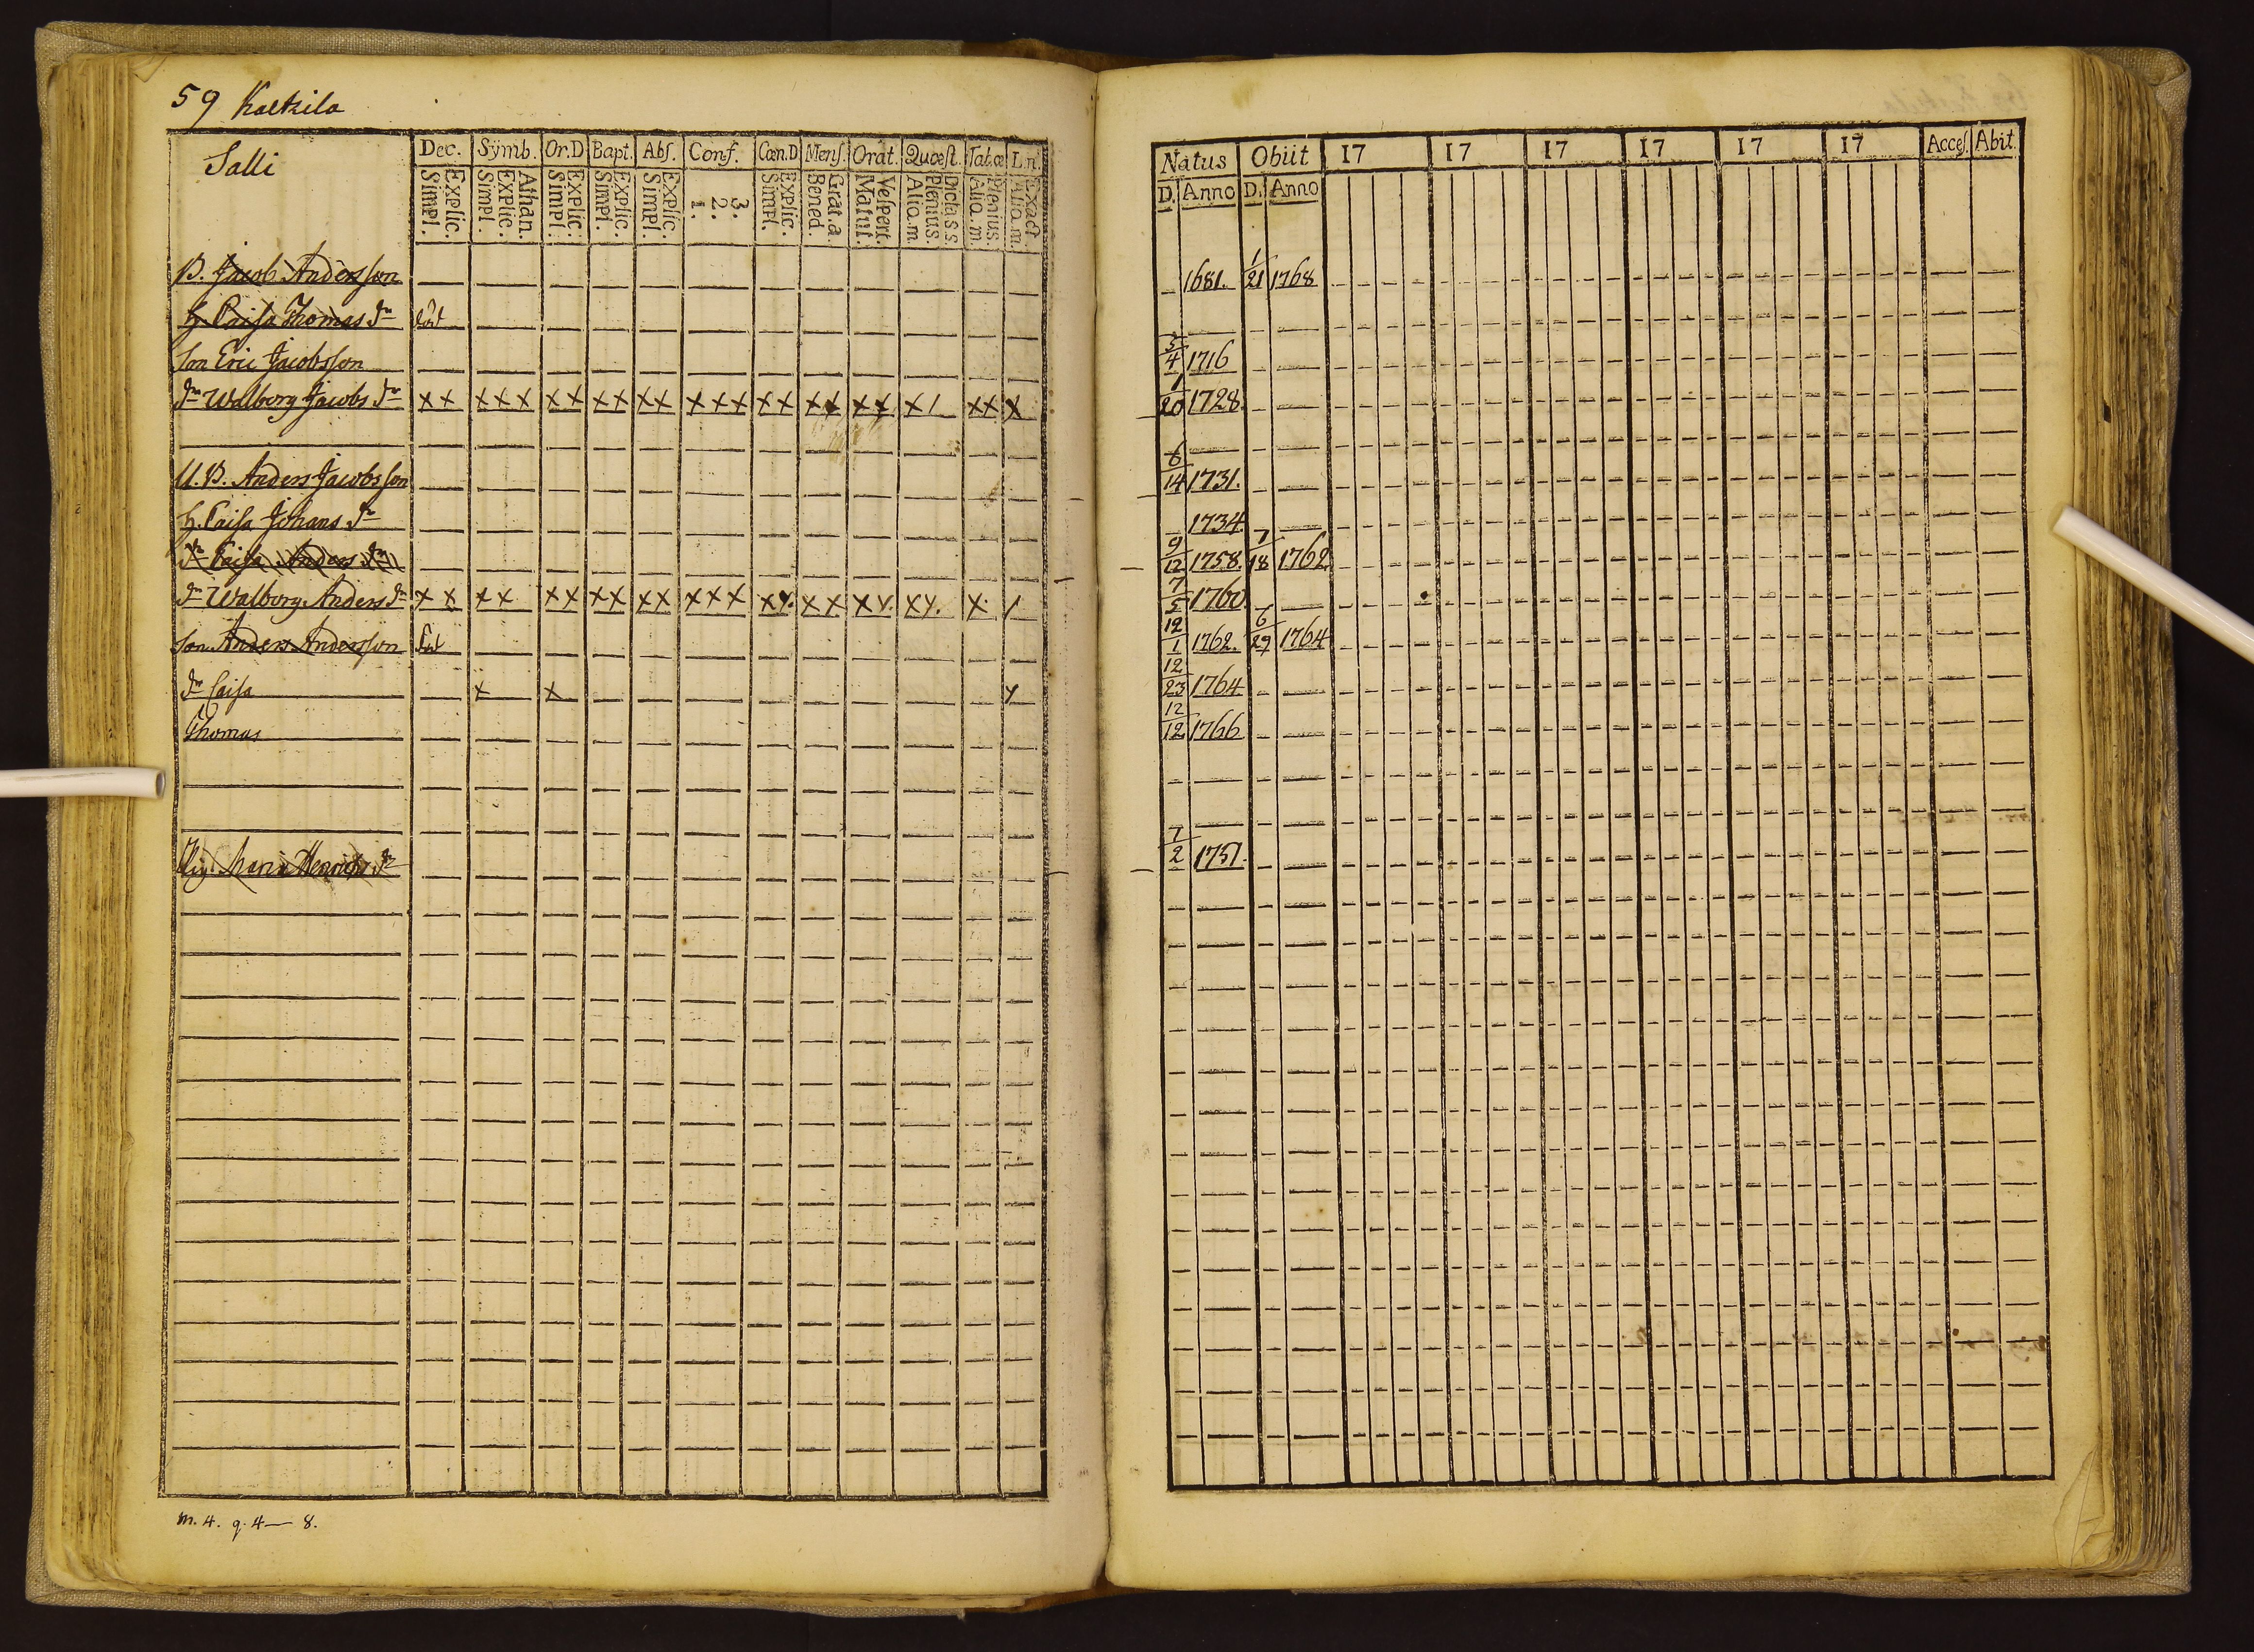 59 Kaltila
Salli
Dec. Sÿmb. Or.D Bapt. Abſ. Conf. Cœn.D Menſ. Orat. Quœſt. Tab.œ L.n.
Explic. Simpl. Athan. Explic. Simpl. Explic. Simpl. Explic. Simpl. Explic. Simpl. 3. 2. 1. Explic. Simpl. Grat.a. Bened. Veſpert. Matut. Dicta s.s. Plenius. Aliq.m Plenius. Aliq.m Exact. Aliq.m.
B. Jacob Andersſon
H. Caiſa Thomas dr död
Son Eric Jacobsſon
dr Walborg Jacobs dr x x x x x x x x x x x x x x x x x x x x x x 1 x x x
U.B. Anders Jacobsſon
H. Caiſa Johans dr
dr Caiſa Anders dr
dr Walborg Anders dr x x x x x x x x x x x x x x y. x x x y. x y. x /
Son Anders Andersſon död
dr Caiſa x x y
Thomas
Pig. Maria Henrichs dr
m. 4. q. 4— 8.
Natus Obiit 17 17 17 17 17 17 Acceſ. Abit.
D. Anno D. Anno
1681. 1/21 1768
5/4 1716
1/20 1728.
6/14 1731.
1734.
9/12 1758. 7/18 1762
7/5 1760.
12/1 1762. 6/29 1764
12/23 1764
12/12 1766
7/2 1751.